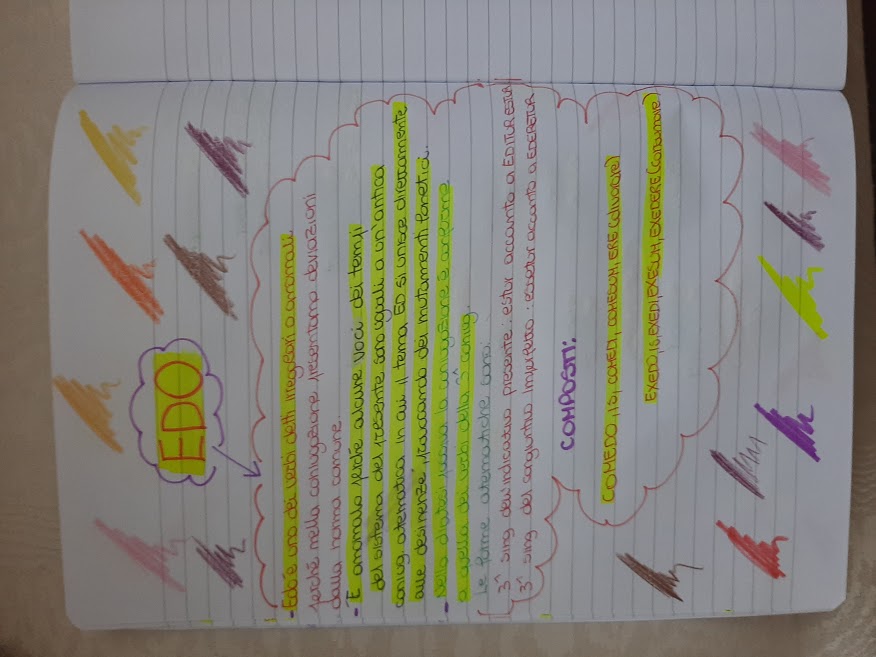 EDO
- Edo è uno dei verbi detti irregolari o anomali
perché nella coniugazione presentano deviazioni
dalla norma comune.
- È anomalo perché alcune voci dei tempi
del sistema del presente sono uguali a un'antica
coniug. atematica in cui il tema ED si unisce direttamente
alle desinenze, ricavando dei mutamenti fonetici.
- Nella diatesi passiva la coniugazione è conforme
a quella dei verbi della 3^ coniug.
Le forme atematiche sono:
3^ sing dell'indicativo presente: estur accanto a EDITUR ESTUR
3^ sing del congiuntivo imperfetto: essetur accanto a EDERETUR
COMPOSTI:
COMEDO, IS, COMEDI, COMESUM, ERE (divorare)
EXEDO, IS, EXEDI, EXESUM, EXEDERE (consumare)